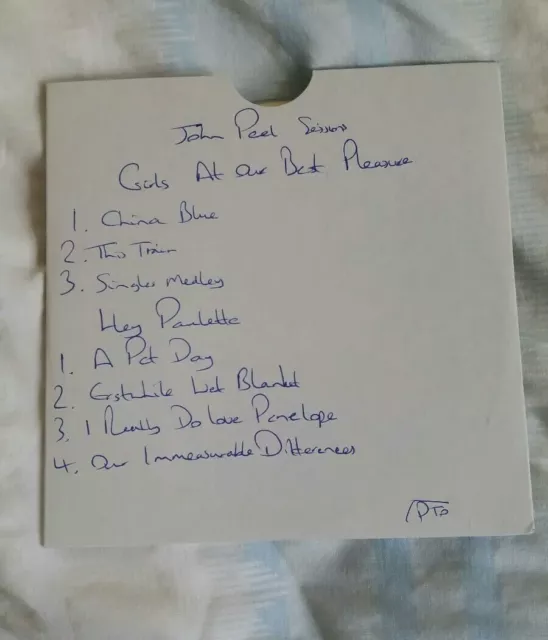 John Peel Sessions
Girls At Our Best Pleasure
1. China Blue
2. This Train
3. Singles Medley
Hey Paulette
1. A Pet Day
2. Wet Blanket
3. I Really Do Love Penelope
4. Our Immeasurable Differences
/PTO